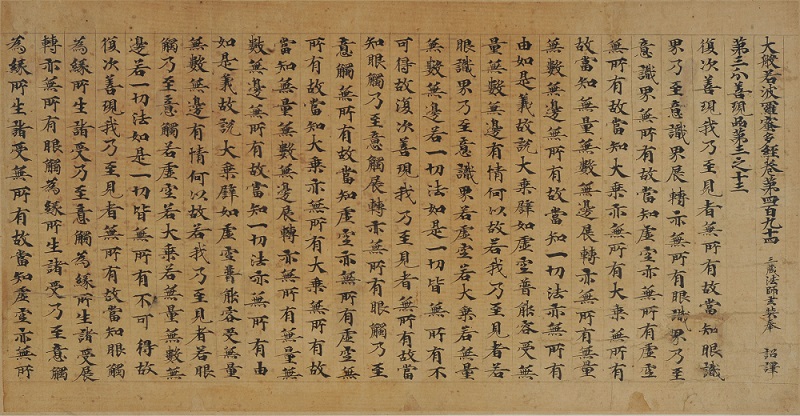 大般若波羅蜜多經卷第四百九十四 三藏法師玄奘奉 詔譯
第三分善現品第三之十三
復次善現我乃至見者無所有故當知眼識
界乃至意識界展轉亦無所有眼識界乃至
意識界無所有故當知虛空亦無所有虛空
無所有故當知大乘亦無所有大乘無所有
故當知無量無數無邊展轉亦無所有無量
無數無邊無所有故當知一切法亦無所有
由如是義故說大乘譬如虛空普能容受無
量無數無邊有情何以故若我乃至見者若
眼識界乃至意識界若虛空若大乘若無量
無數無邊若一切法如是一切皆無所有不
可得故復次善現我乃至見者無所有故當
知眼觸乃至意觸展轉亦無所有眼觸乃至
意觸無所有故當知虛空亦無所有虛空無
所有故當知大乘亦無所有大乘無所有故
當知無量無數無邊展轉亦無所有無量無
數無邊無所有故當知一切法亦無所有由
如是義故說大乘譬如虛空普能容受無量
無數無邊有情何以故若我乃至見者若眼
觸乃至意觸若虛空若大乘若無量無數無
邊若一切法如是一切皆無所有不可得故
復次善現我乃至見者無所有故當知眼觸
為緣所生諸受乃至意觸為緣所生諸受展
轉亦無所有眼觸為緣所生諸受乃至意觸
為緣所生諸受無所有故當知虛空亦無所